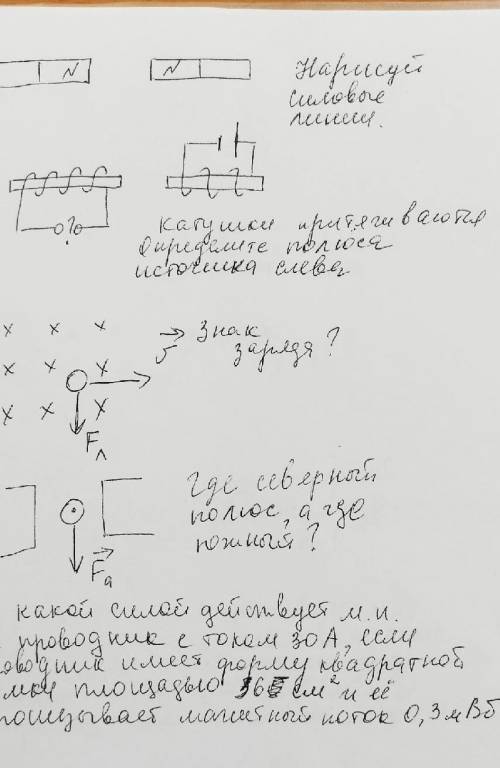 N
N
Нарисуй
силовые
линии.
катушки притягиваются
определите полюса
источника слева
х х х
х х х
х х х
v
Знак
заряда?
Fл
Где северный
полюс, а где
южный?
Fа
какой силой действует м.п.
проводник с током 30А, если
оводник имеет форму квадратной
мки площадью 16 см² и её
ронизывает магнитный поток 0,3 мВб